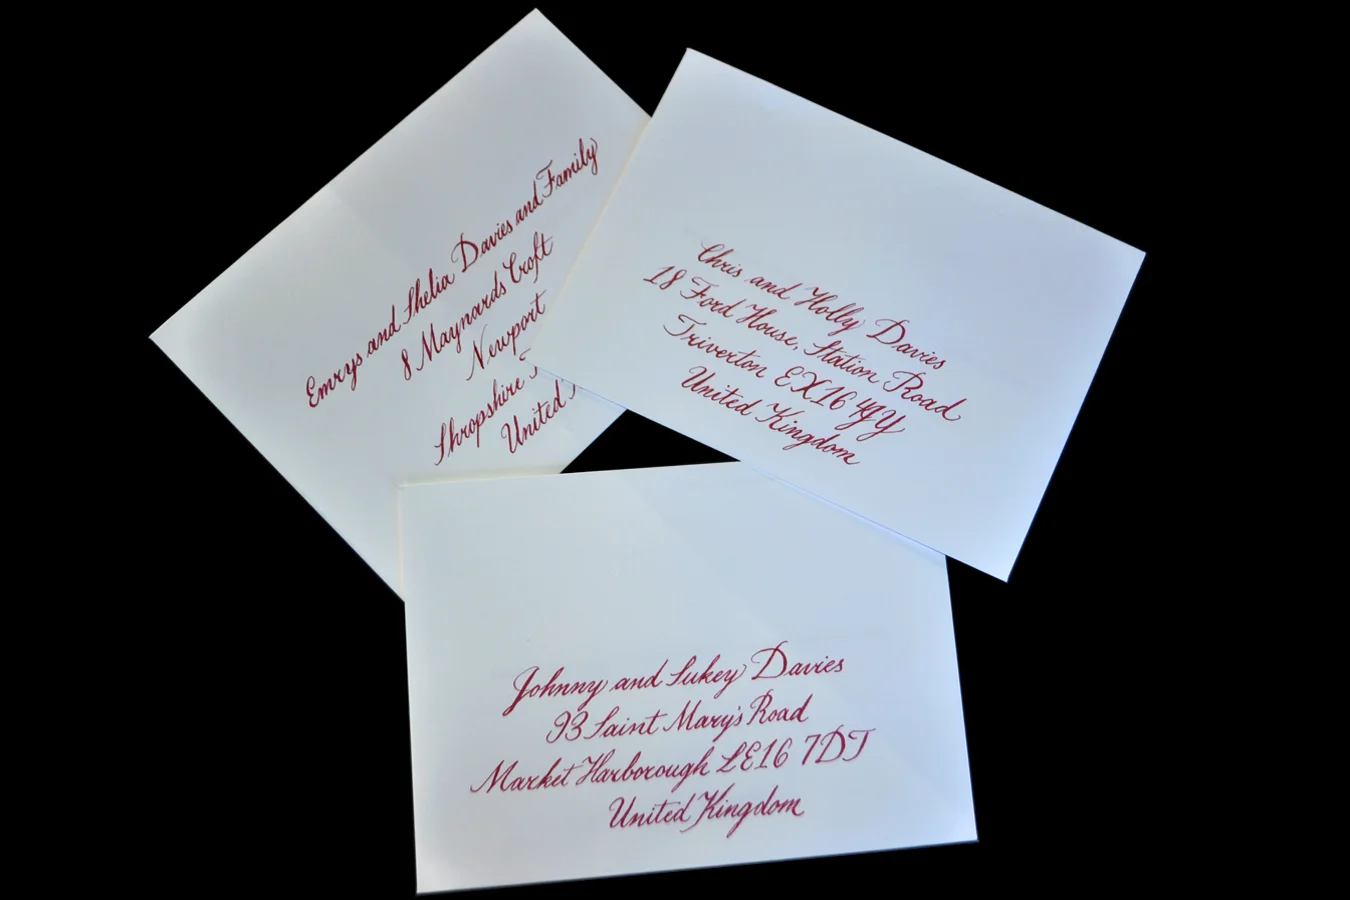 Emrys and Shelia Davies and Family
8 Maynards Croft
Newport
Shropshire
United
Chris and Holly Davies
18 Ford House, Station Road
Triverton EX16 4GY
United Kingdom
Johnny and Sukey Davies
93 Saint Mary's Road
Market Harborough LE16 7DT
United Kingdom